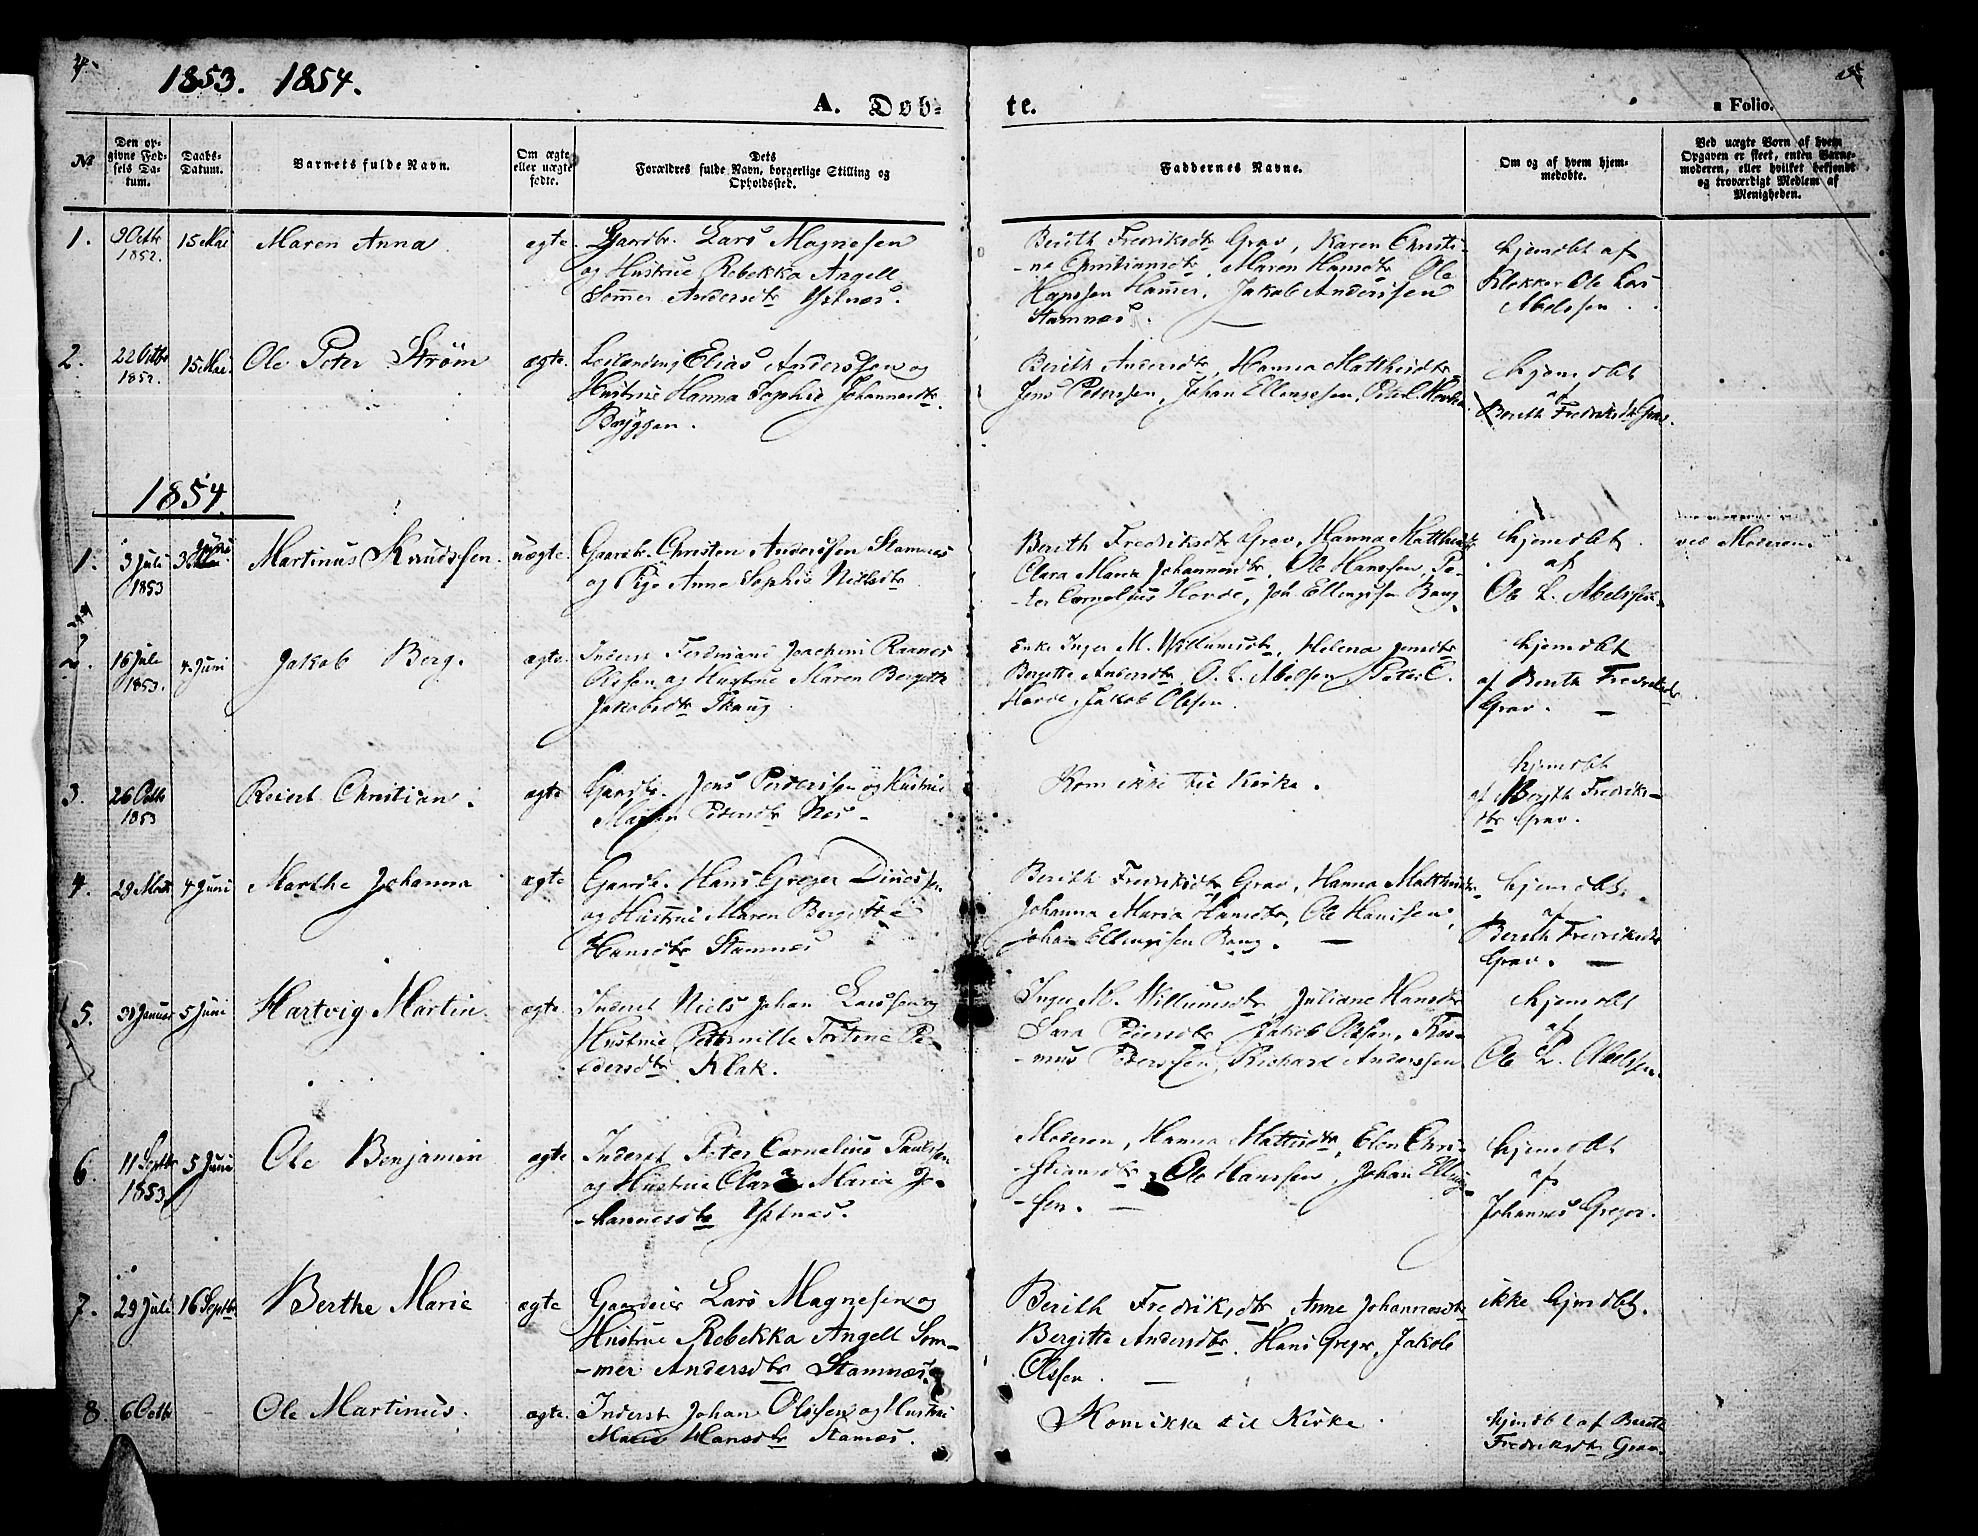 4.
1853. 1854.
A. Døb-
te.
a Folio.
№
Den op-
givne Fød-
sels Da-
tum.
Daabs-
Datum.
Barnets fulde Navn.
Om ægte
eller uægte
fødte.
Dets
Forældres fulde Navn, borgerlige Stilling og
Opholdssted.
Faddernes Navne.
Om og af hvem hjem-
medøbte.
Ved uægte Børn af hvem
Opgaven er skeet, enten Barne-
moderen, eller hvilket bekjendt
og troværdigt Medlem af
Menigheden.
1.
9 Octbr
1852.
15 Mai
Maren Anna
ægte
Gaardbr. Lars Magnesen
og Hustrue Rebekka Angell
Sommer Andersdtr
Berith Fredriksdtr Grav, Karen Christi-
-ne Christiansdtr, Maren Hansdtr, Ole
Hanssen Hamer, Jakob Anderssen
Stamnes.
hjemdøbt af
Klokker Ole Lars
Abelssen.
2.
22 Octbr
1852.
15 Mai.
Ole Peter Strøm
ægte.
Leilænding Elias Anderssen og
Hustrue Hanna Sophie Johannesdtr
Bryggen.
Berith Andersdtr, Hanna Matthisdtr
Jens Pederssen, Johan Ellingssen, Peter C. Hovde
hjemdøbt
af
Berith Fredriksdtr Grav.
1854.
1.
3 Juli
1853
3 Juni
Martinus Knudssen.
uægte
Gaardbr. Christen Anderssen Stamnes
og Pige Anne Sophie Nielsdtr
Berith Fredriksdtr Grav, Hanna Matthisdtr
Clara Maria Johannesdtr, Ole Hanssen, Pe-
-ter Cornelius Hovde, Joh. Ellingssen Baug
hjemdøbt
af
Ole L. Abelssen.
ved Moderen.
2.
16 Juli
1853.
4. Juni
Jakob Berg.
ægte
Inderst Ferdinand Joachim Raanes
Olssen og Hustrue Maren Bergitte
Jakobsdtr Skaug
Enke Inger M. Willumsdtr, Helena Jensdtr
Bergitte Andersdtr, O. L. Abelsen, Peter C.
Hovde, Jakob Olssen.
hjemdøbt
af Berith Fredriksdtr
Grav.
3.
26 Octb
1853
Reiert Christian.
ægte
Gaardbr. Jens Pederssen og Hustrue
Maren Pedersdtr Nes-
Kom ikke til Kirke.
hjemdøbt
af Berith Fredriks-
dtr Grav.
4.
29 Mai
4 Juni
Marthe Johanna
ægte
Gaardbr. Hans Greger Dinessen
og Hustrue Maren Bergitte
Hansdtr Stamnes
Berith Fredriksdtr Grav, Hanna Matthisdtr
Johanna Maria Hansdtr, Ole Hanssen,
Johan Ellingssen Baug.
hjemdøbt
af
Berith Fredriksdtr
Grav.
5.
31 Januar
5 Juni
Hartvig Martin
ægte.
Inderst Niels Johan Larssen og
Hustrue Peternille Tortine Pe-
-dersdtr Klak.
Inger M. Willumsdtr, Juliane Hansdtr
Sara Pedersdtr, Jakob Olssen, Ras-
-mus Pederssen, Richard Anderssen
hjemdøbt
af
Ole L. Abelssen.
6.
11 Septbr
1853
5 Juni
Ole Benjamin
ægte
Inderst Peter Cornelius Paulssen
og Hustrue Clara Maria Jo-
-hannesdtr
Moderen, Hanna Mattisdtr, Elen Chri-
-stiansdtr, Ole Hanssen, Johan Elling-
-sen.
hjemdøbt
af
Johannes Greger.
7.
29 Juli
16 Septbr
Berthe Marie
ægte
Gaardeier Lars Magnesen og
Hustrue Rebekka Angell Som-
-mer Andersdtr Stamnes.
Berith Fredriksdtr, Anne Johannesdtr
Bergitte Andersdtr, Hans Greger, Jakob
Olssen.
ikke hjemdøbt.
8.
6 Octbr
Ole Martinus.
ægte.
Inderst Johan Olssen og Hustrue
Marie Hansdtr Stamnes.
Kom ikke til Kirke.
hjemdøbt af Berith
Fredriksdtr Grav